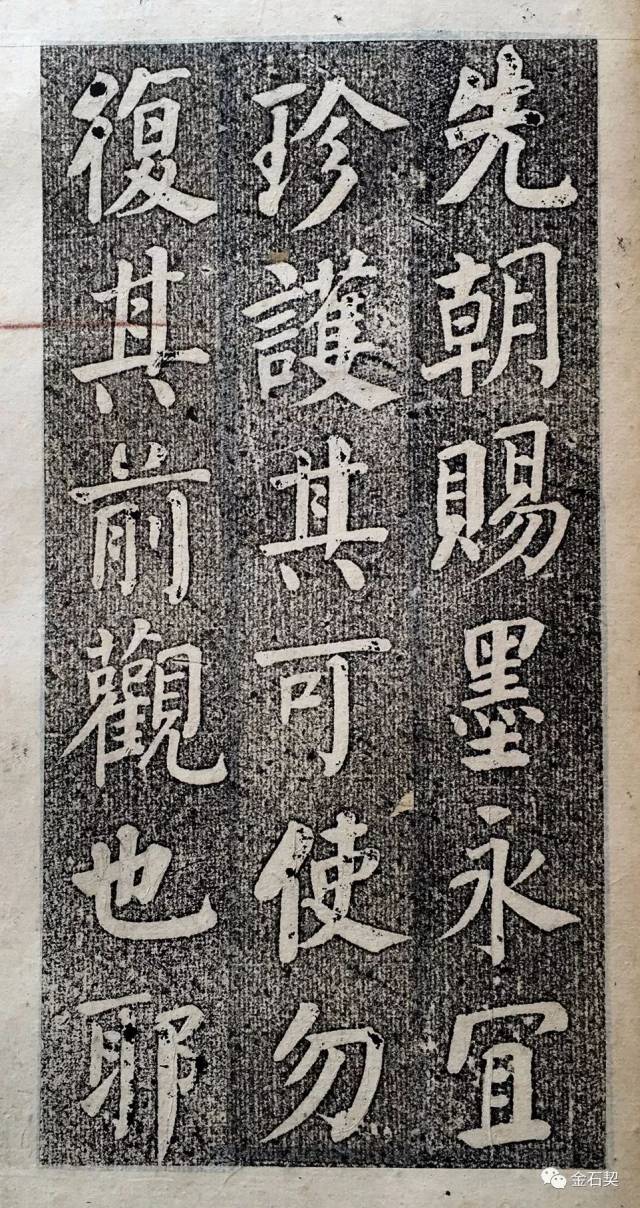 先朝賜墨永冝
珍護其可使勿
復其前觀也耶
金石契